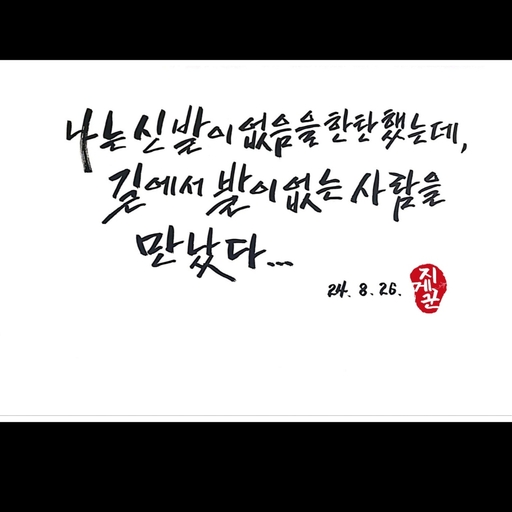 나는 신발이 없음을 한탄했는데,
길에서 발이 없는 사람을
만났다...
24. 8. 26.
지
게꾼